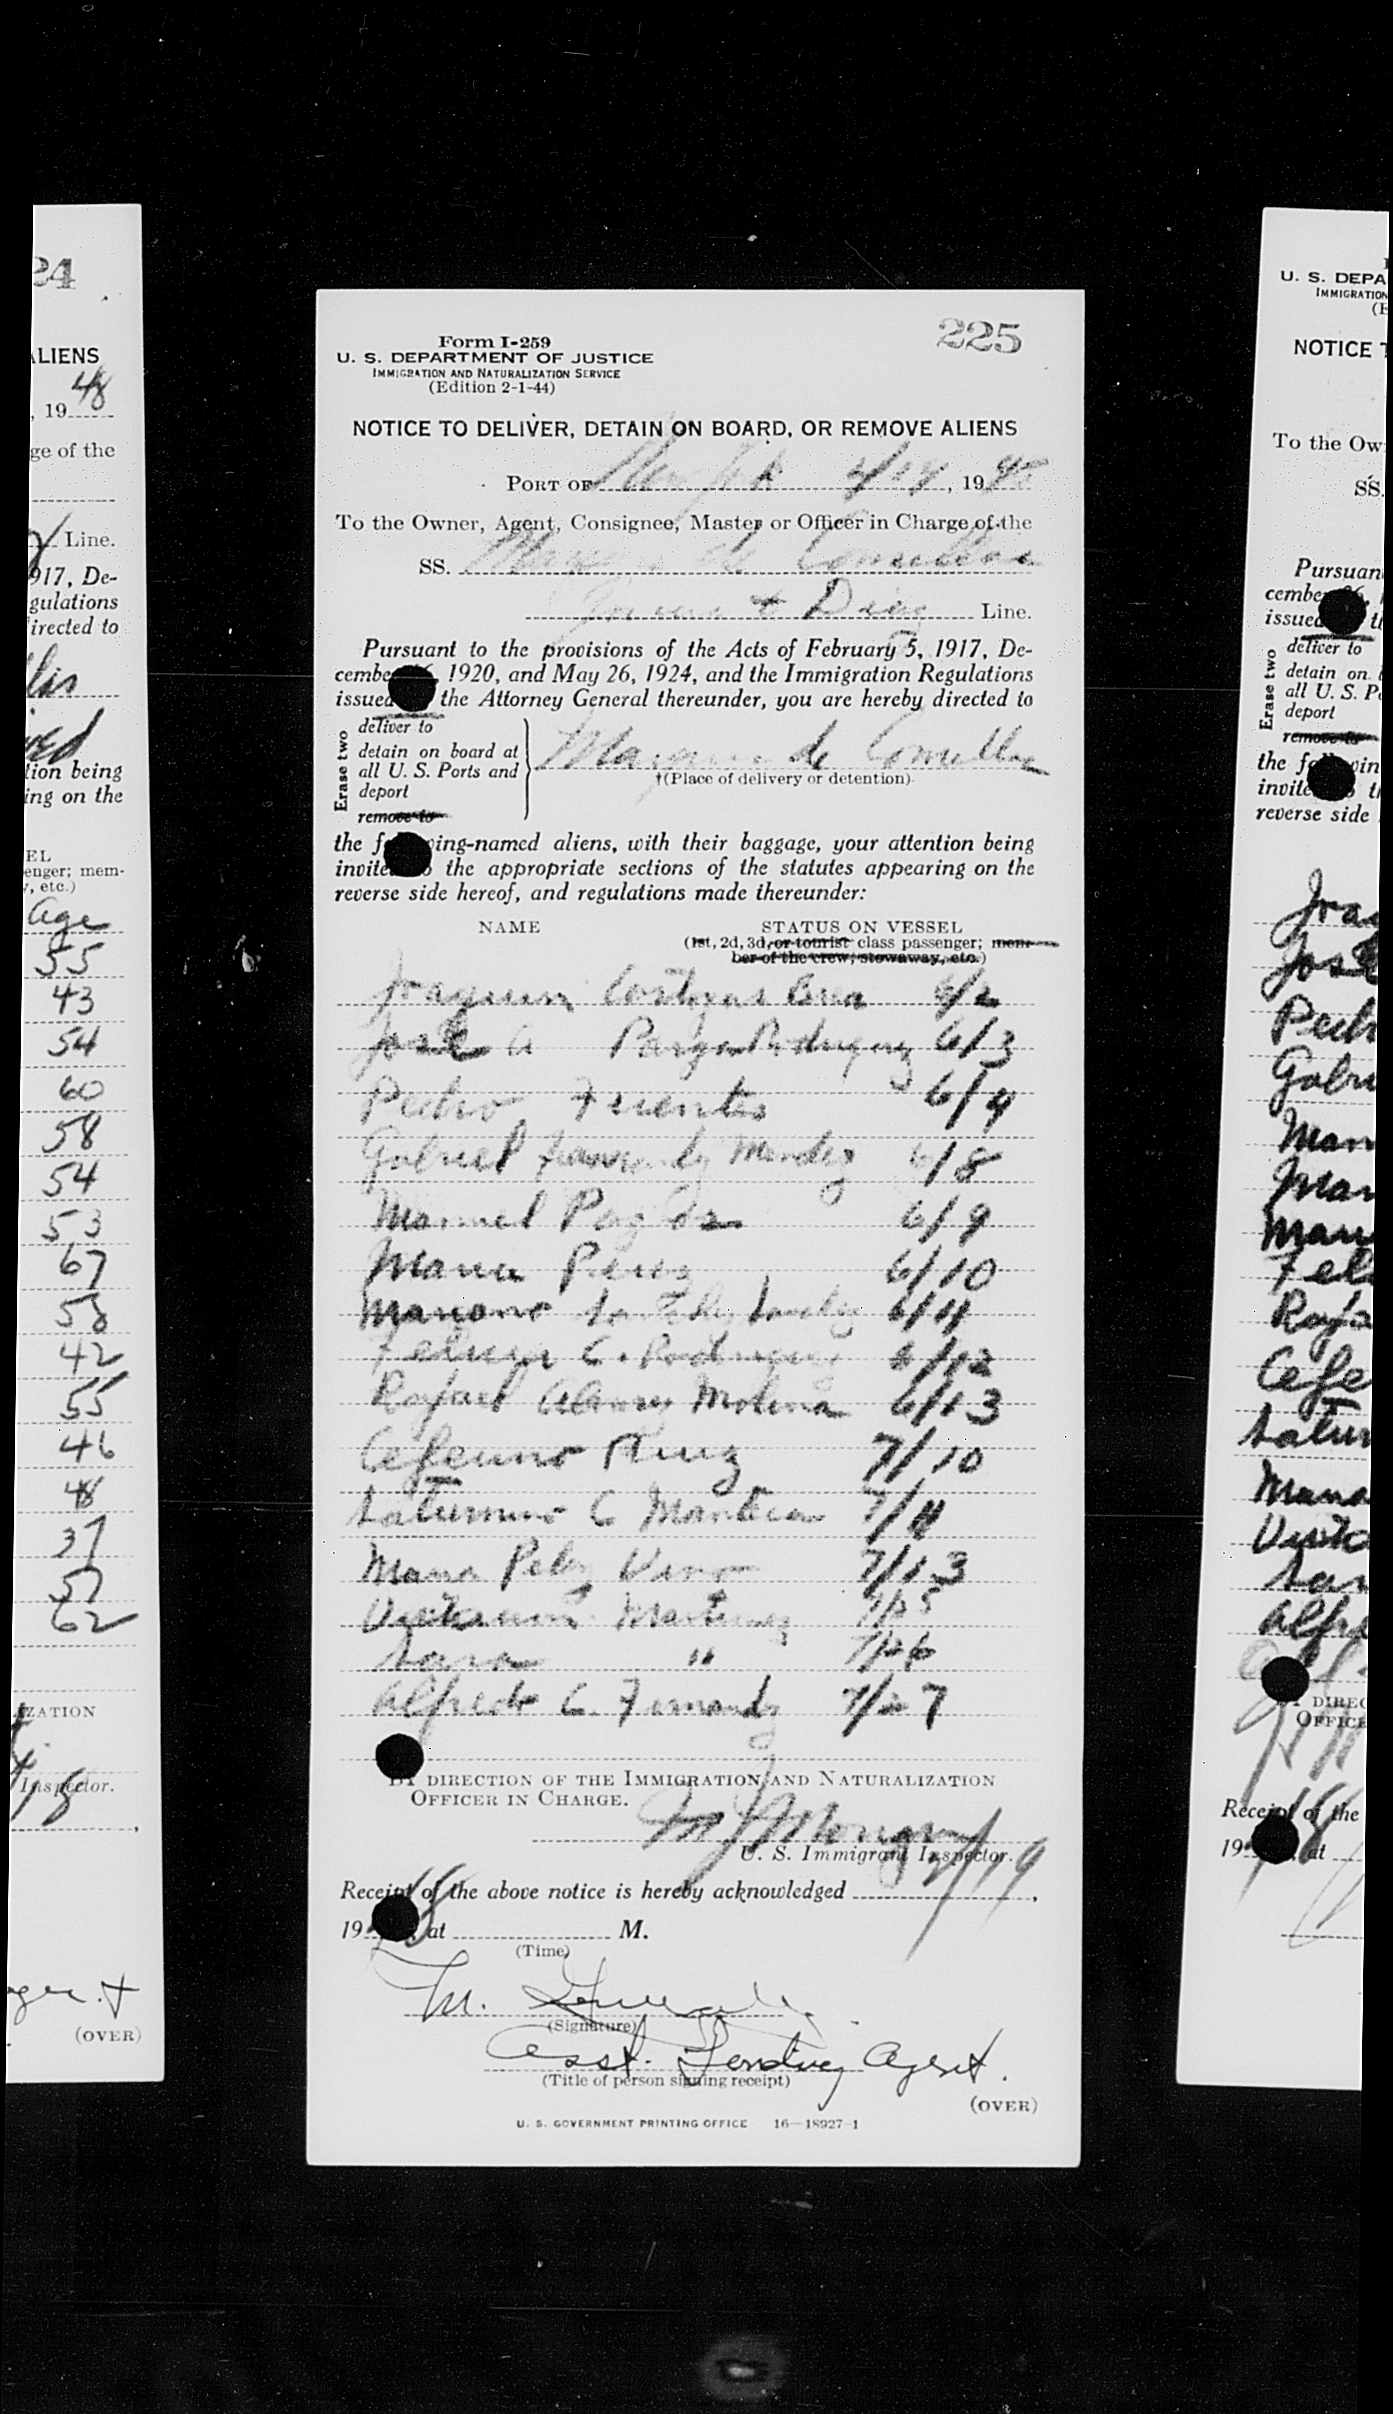 24
ALIENS
, 19 48
ge of the
Line.
917, De-
gulations
irected to
tion being
ing on the
EL
enger; mem-
, etc.)
Age
55
43
54
60
58
54
53
67
58
42
55
46
48
37
57
62
ZATION
Inspector.
(OVER)
Form I-259
225
U. S. DEPARTMENT OF JUSTICE
IMMIGRATION AND NATURALIZATION SERVICE
(Edition 2-1-44)
NOTICE TO DELIVER, DETAIN ON BOARD, OR REMOVE ALIENS
PORT OF New York , 19 48
To the Owner, Agent, Consignee, Master or Officer in Charge of the
SS. Marques de Comillas
+ Diaz Line.
Pursuant to the provisions of the Acts of February 5, 1917, De-
cembe 1920, and May 26, 1924, and the Immigration Regulations
issued the Attorney General thereunder, you are hereby directed to
Erase two
deliver to
detain on board at
all U. S. Ports and
deport
remove to
Marques de Comillas
†(Place of delivery or detention)
the f ing-named aliens, with their baggage, your attention being
invite the appropriate sections of the statutes appearing on the
reverse side hereof, and regulations made thereunder:
NAME STATUS ON VESSEL
(1st, 2d, 3d, or tourist class passenger; mem-
ber of the crew, stowaway, etc.)
Joaquin 6/2
Jose A Parga Rodriguez 6/3
Pedro Fuentes 6/4
Gabriel Mendez 6/8
Manuel 6/9
Maria Perez 6/10
Mariano 6/11
C. Rodriguez 6/12
Rafael Molina 6/13
Ceferino Ruiz 7/10
Saturnino C 7/11
Maria 7/13
Martinez 7/25
Sara " 7/26
Alfredo C. Fernandez 7/27
BY DIRECTION OF THE IMMIGRATION AND NATURALIZATION
OFFICER IN CHARGE.
U. S. Immigrant Inspector.
Receipt of the above notice is hereby acknowledged ,
19 , at M.
(Time)
M.
(Signature)
Asst. Landing Agent.
(Title of person signing receipt)
(OVER)
U. S. GOVERNMENT PRINTING OFFICE 16—18927-1
U. S. DEPA
IMMIGRATION
(E
NOTICE T
To the Ow
SS.
Pursuan
cembe
issued
Erase two
deliver to
detain on
all U. S. P
deport
remove to
the f
invite
reverse side
Jose
Rafa
Cefe
Satur
Alfre
DIREC
OFFICE
Receipt of the
19 , at